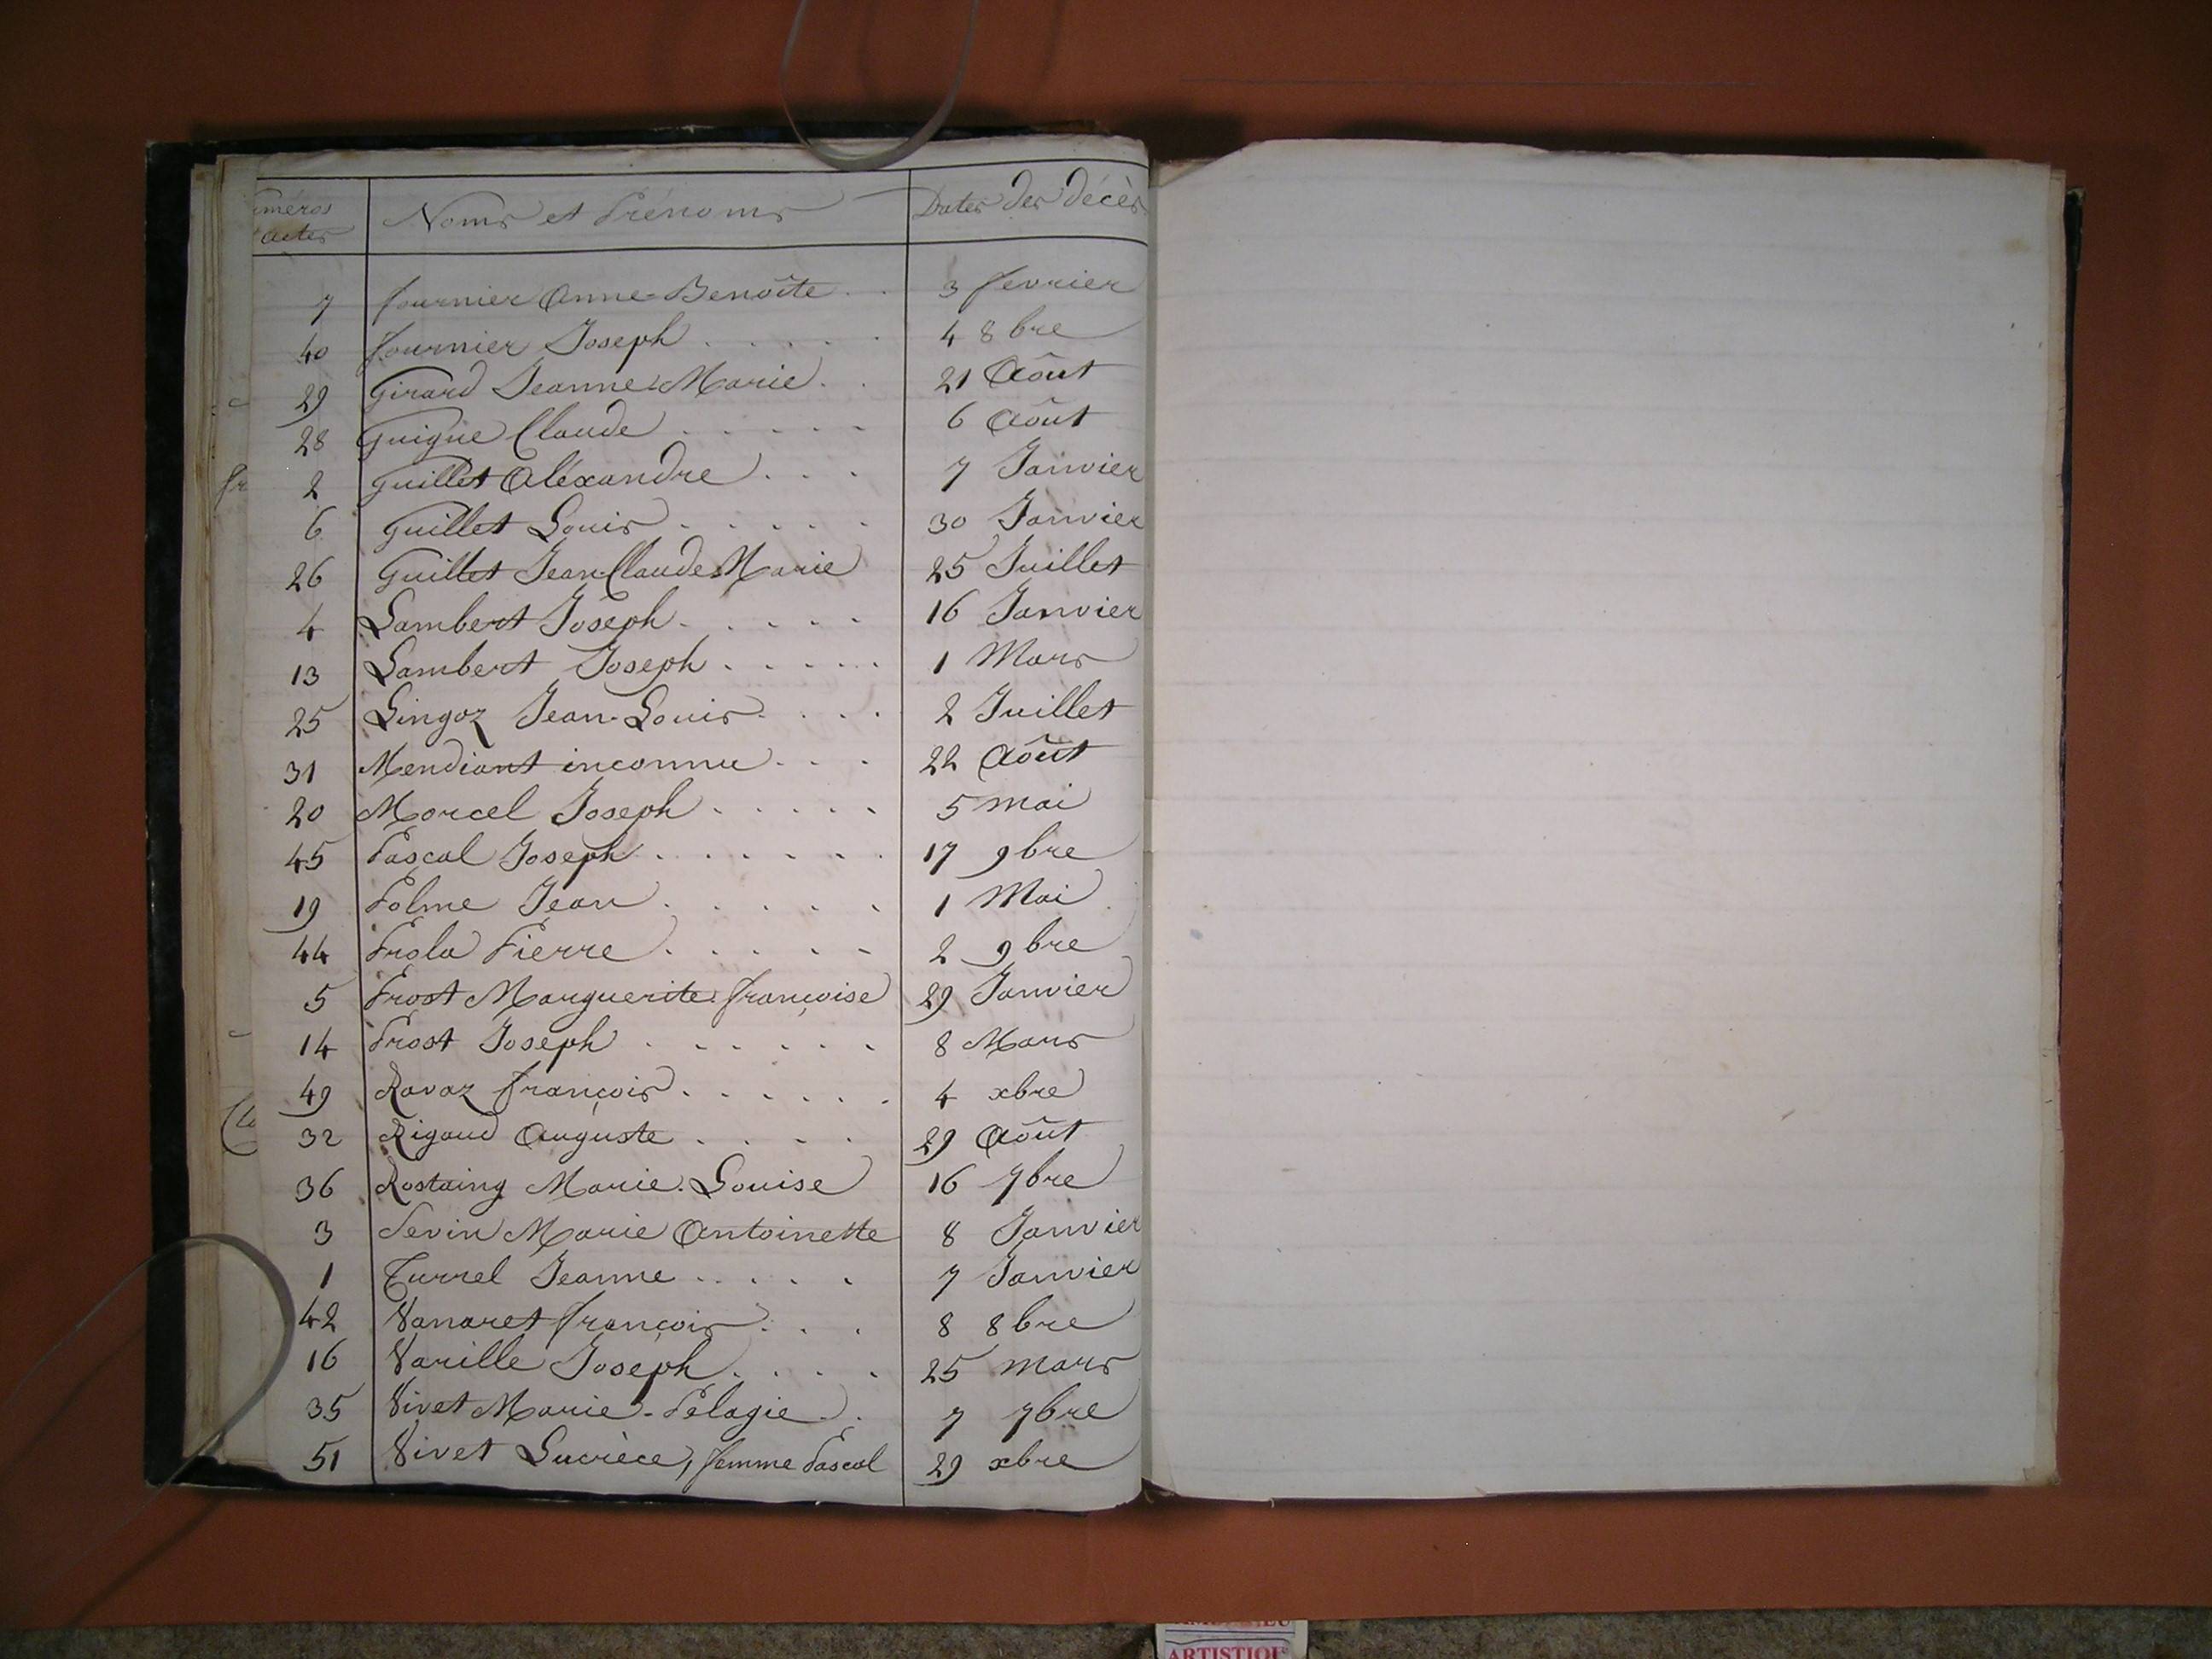 Numéros Noms et Prénoms Dates des décès
actes
7 fournier Anne-Benoîte . . 3 fevrier
40 fournier Joseph . . . . . 4 8bre
29 Girard Jeanne Marie . . 21 Août
28 Guigue Claude . . . . . 6 Août
2 Guillet Aléxandre . . . 7 Janvier
6 Guillet Louis . . . . . 30 Janvier
26 Guillet Jean-Claude Marie 25 Juillet
4 Lambert Joseph . . . . . 16 Janvier
13 Lambert Joseph . . . . . 1 Mars
25 Lingoz Jean-Louis . . . . 2 Juillet
31 Mendiant inconnu . . . 22 Août
20 Morcel Joseph . . . . . 5 mai
45 Pascal Joseph . . . . . . 17 9bre
19 Polme Jean . . . . . 1 Mai
44 Prola Pierre . . . . . 2 9bre
5 Prost Marguerite françoise 29 Janvier
14 Prost Joseph . . . . . . 8 Mars
49 Ravaz françois . . . . . . 4 xbre
32 Rigaud Auguste . . . . 29 Août
36 Rostaing Marie-Louise 16 7bre
3 Sevin Marie Antoinette 8 Janvier
1 Turrel Jeanne . . . . . 7 Janvier
42 Vanaret françois . . . 8 8bre
16 Varille Joseph . . . . 25 mars
35 Vivet Marie-Pélagie . . 7 7bre
51 Vivet Lucrèce, femme Pascal 29 xbre
ARTISTIQU